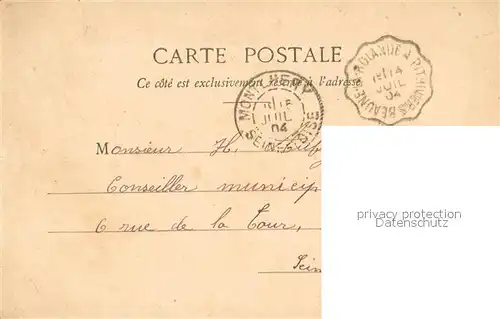 CARTE POSTALE
Ce côté est exclusivement réservé à l'adresse
BEAUNE-LA-ROLANDE À PITHIVIERS
14
JUIL
04
MONTLHERY
15
JUIL
04
SEINE-ET-OISE
Monsieur H.
Conseiller municip
6 rue de la Tour,
Sein
privacy protection
Datenschutz